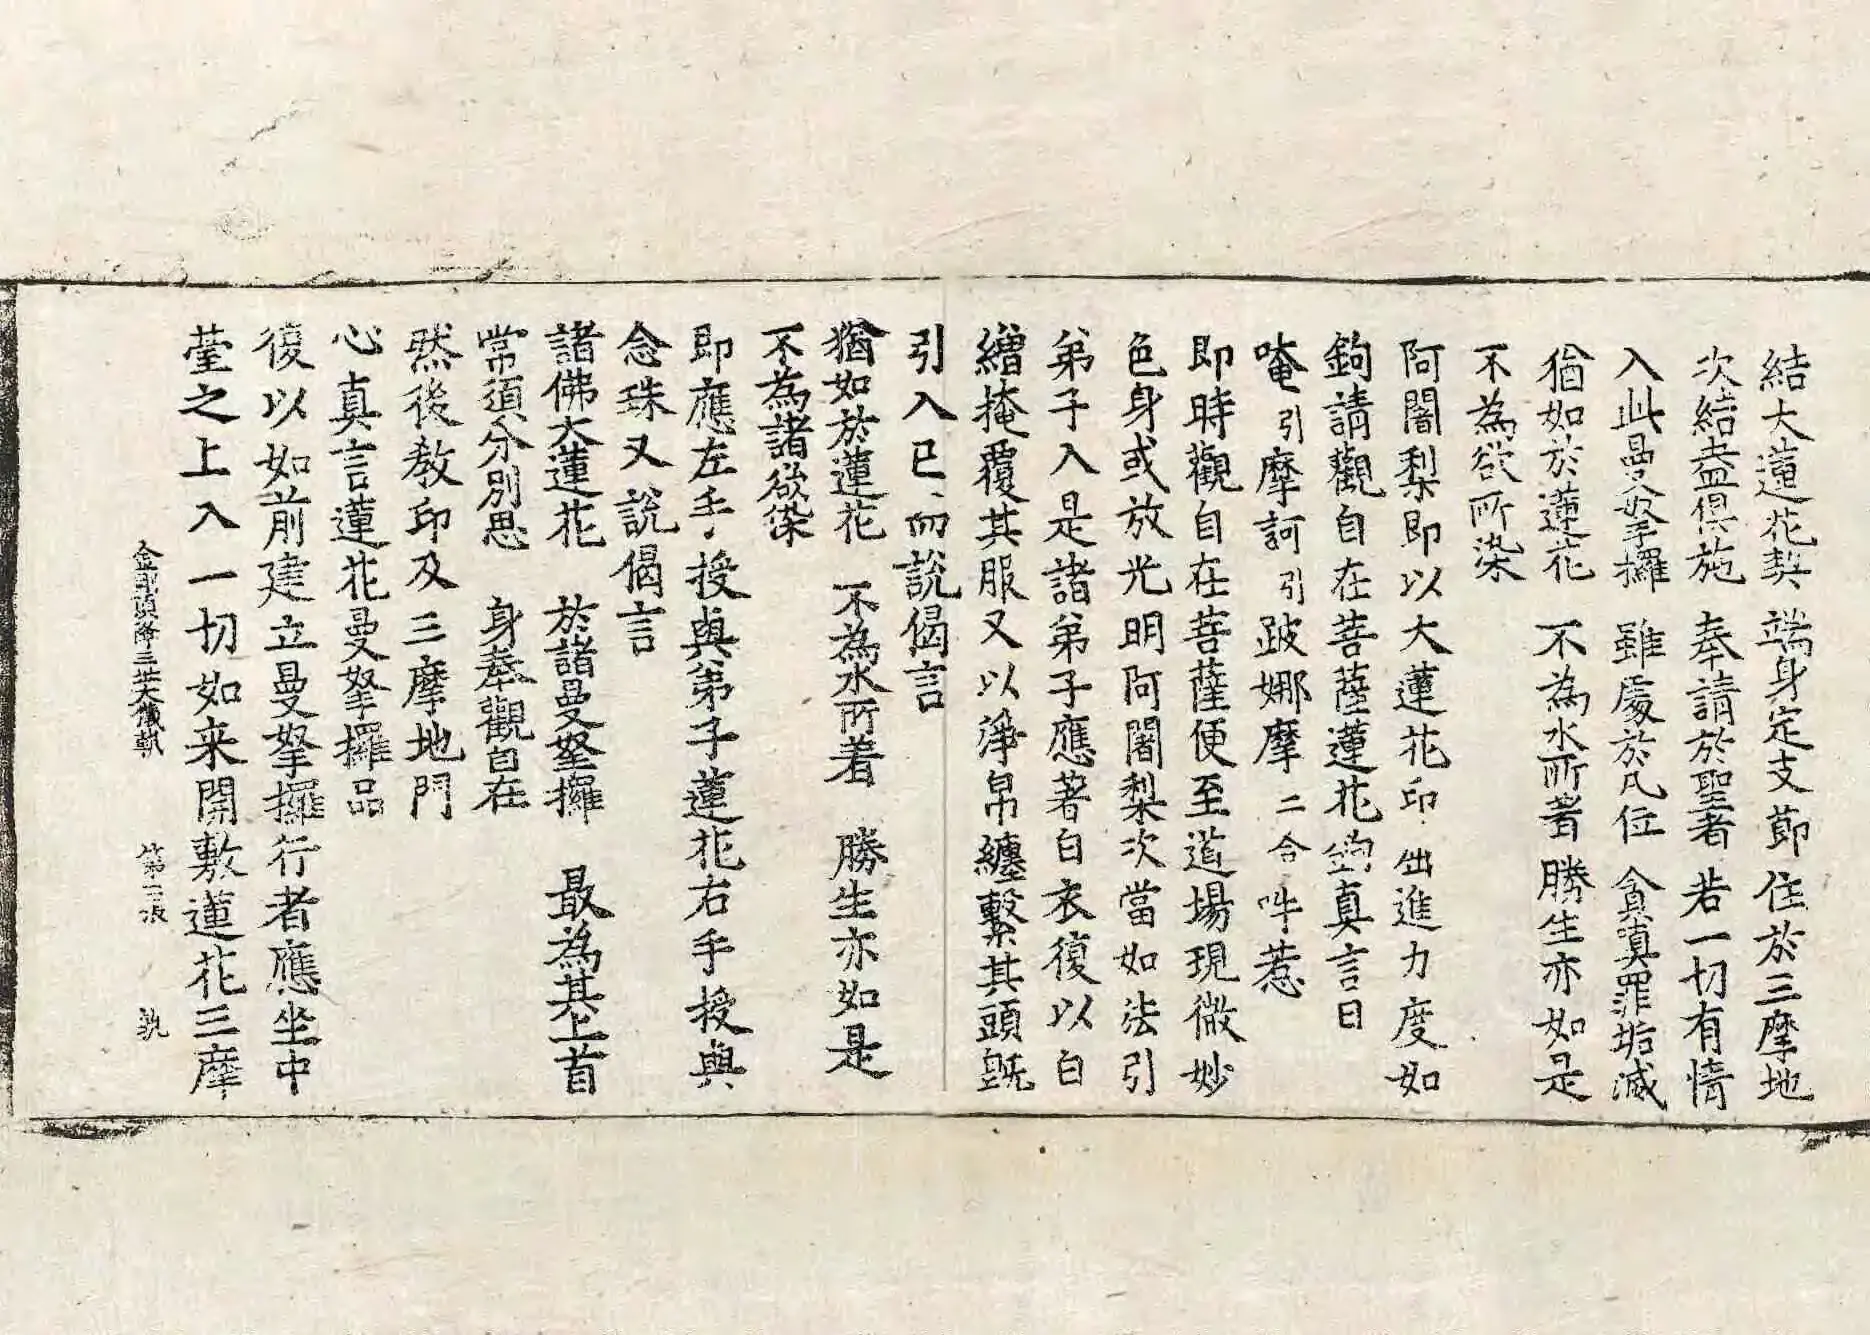 結大蓮花契　端身定支節　住於三摩地
次結盡俱施　奉請於聖者　若一切有情
入此曼拏攞　雖處於凡位　貪嗔罪垢滅
猶如於蓮花　不為水所著　勝生亦如是
不為欲所染
阿闍梨即以大蓮花印出進力度如
鉤請觀自在菩薩蓮花鉤真言曰
唵引摩訶引跛娜摩二合吽惹
即時觀自在菩薩便至道場現微妙
色身或放光明阿闍梨次當如法引
弟子入是諸弟子應著白衣復以白
繒掩覆其服又以淨帛纏繫其頭既
引入已而說偈言
猶如於蓮花　不為水所着　勝生亦如是
不為諸欲染
即應左手授與弟子蓮花右手授與
念珠又說偈言
諸佛大蓮花　於諸曼拏攞　最為其上首
常須分別思　身奉觀自在
然後教印及三摩地門
心真言蓮花曼拏攞品
復以如前建立曼拏攞行者應坐中
臺之上入一切如来開敷蓮花三摩
金剛頂降三世大儀軌　第三張　執